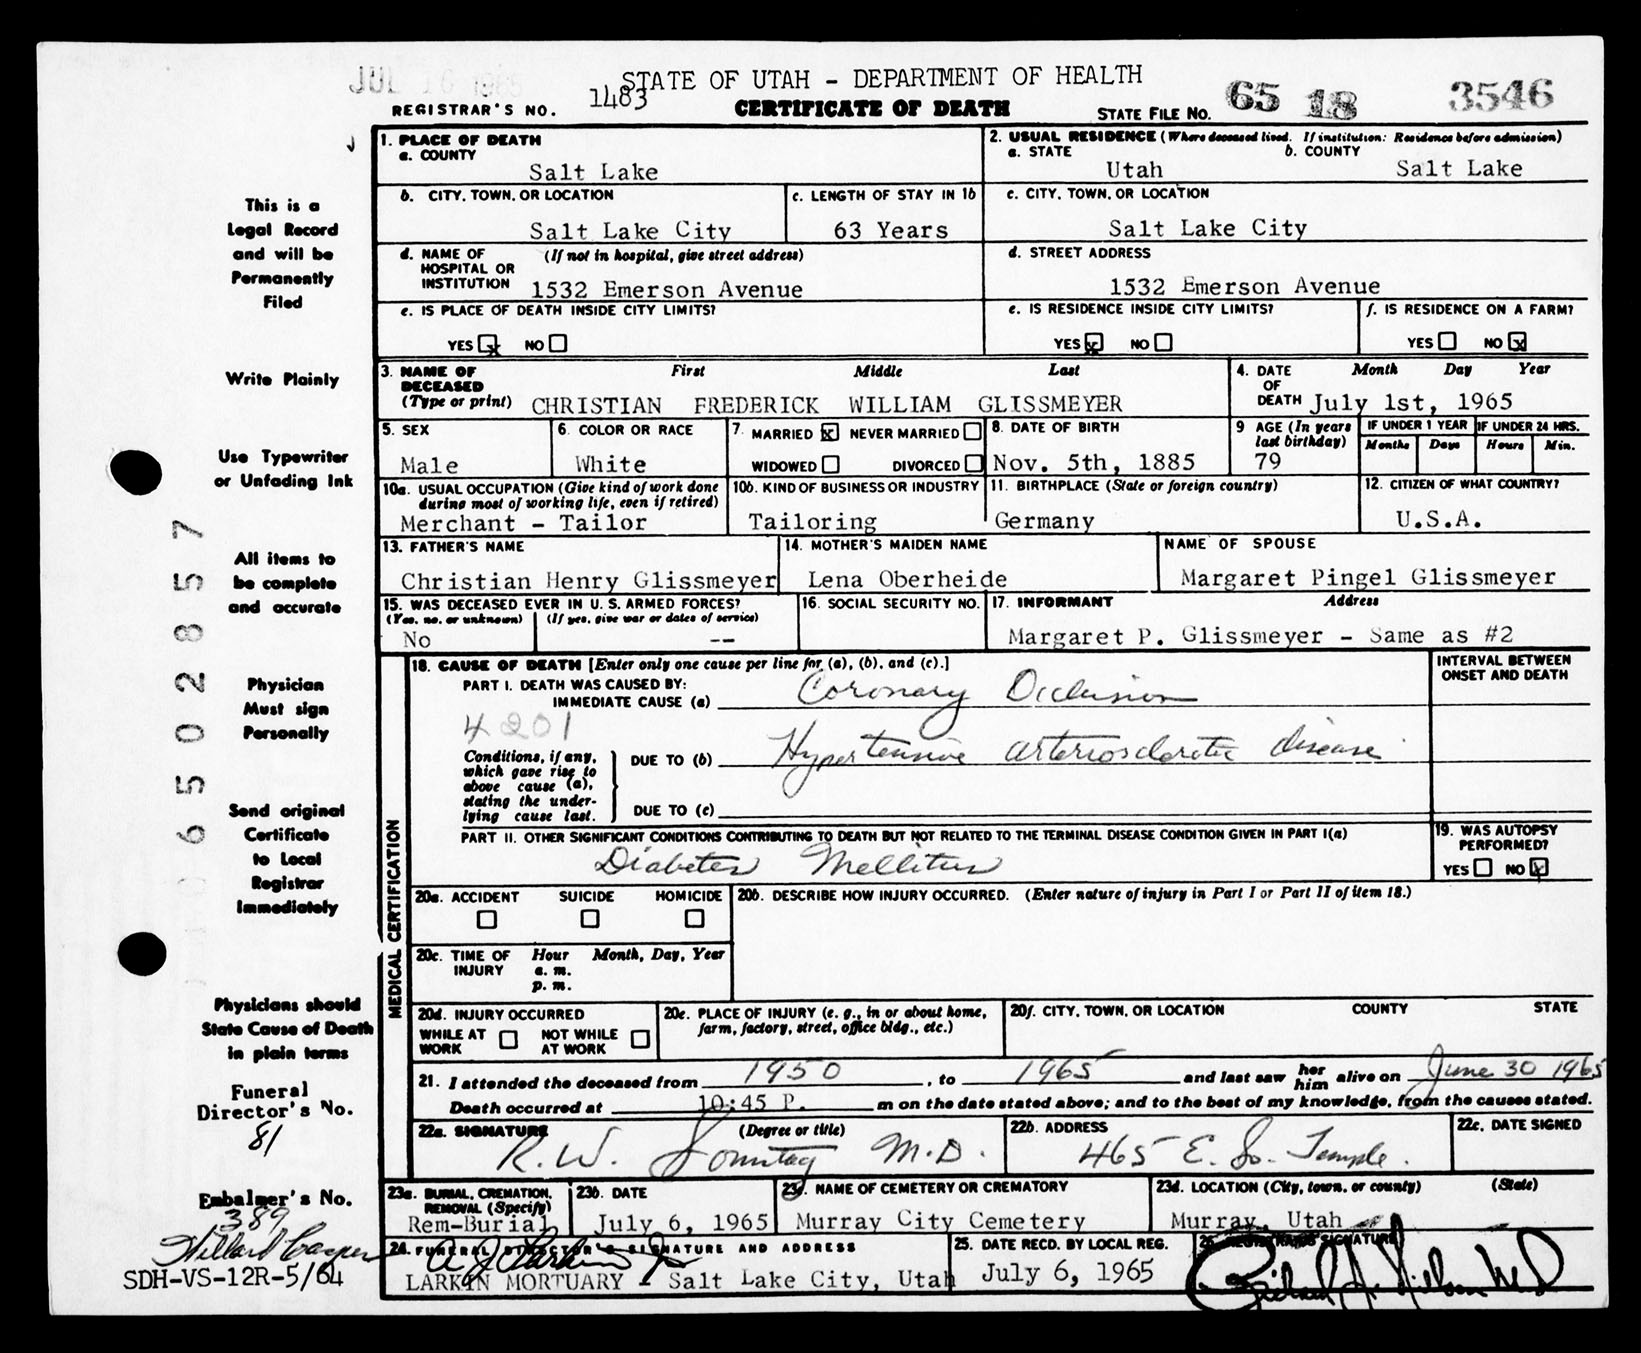 JUL 16 1965
STATE OF UTAH - DEPARTMENT OF HEALTH
REGISTRAR'S NO. 1483 CERTIFICATE OF DEATH STATE FILE NO. 65 18 3546
This is a
Legal Record
and will be
Permanently
Filed
Write Plainly
Use Typewriter
or Unfading Ink
All items to
be complete
and accurate
Physician
Must sign
Personally
Send original
Certificate
to Local
Registrar
Immediately
Physicians should
State Cause of Death
in plain terms
Funeral
Director's No.
81
Embalmer's No.
389
Willard
SDH-VS-12R-5/64
6502857
1. PLACE OF DEATH
a. COUNTY
Salt Lake
2. USUAL RESIDENCE (Where deceased lived. If institution: Residence before admission)
a. STATE b. COUNTY
Utah Salt Lake
b. CITY, TOWN, OR LOCATION
Salt Lake City
c. LENGTH OF STAY IN 1b
63 Years
c. CITY, TOWN, OR LOCATION
Salt Lake City
d. NAME OF (If not in hospital, give street address)
HOSPITAL OR
INSTITUTION 1532 Emerson Avenue
d. STREET ADDRESS
1532 Emerson Avenue
e. IS PLACE OF DEATH INSIDE CITY LIMITS?
YES x NO
e. IS RESIDENCE INSIDE CITY LIMITS?
YES x NO
f. IS RESIDENCE ON A FARM?
YES NO x
3. NAME OF First Middle Last
DECEASED
(Type or print) CHRISTIAN FREDERICK WILLIAM GLISSMEYER
4. DATE Month Day Year
OF
DEATH July 1st, 1965
5. SEX
Male
6. COLOR OR RACE
White
7. MARRIED x NEVER MARRIED
WIDOWED DIVORCED
8. DATE OF BIRTH
Nov. 5th, 1885
9 AGE (In years
last birthday)
79
IF UNDER 1 YEAR
Months Days
IF UNDER 24 HRS.
Hours Min.
10a. USUAL OCCUPATION (Give kind of work done
during most of working life, even if retired)
Merchant - Tailor
10b. KIND OF BUSINESS OR INDUSTRY
Tailoring
11. BIRTHPLACE (State or foreign country)
Germany
12. CITIZEN OF WHAT COUNTRY?
U.S.A.
13. FATHER'S NAME
Christian Henry Glissmeyer
14. MOTHER'S MAIDEN NAME
Lena Oberheide
NAME OF SPOUSE
Margaret Pingel Glissmeyer
15. WAS DECEASED EVER IN U. S. ARMED FORCES?
(Yes, no, or unknown) (If yes, give war or dates of service)
No --
16. SOCIAL SECURITY NO.
17. INFORMANT Address
Margaret P. Glissmeyer - Same as #2
MEDICAL CERTIFICATION
18. CAUSE OF DEATH [Enter only one cause per line for (a), (b), and (c).]
INTERVAL BETWEEN
ONSET AND DEATH
PART I. DEATH WAS CAUSED BY:
IMMEDIATE CAUSE (a) Coronary Occlusion
4201
Conditions, if any,
which gave rise to
above cause (a),
stating the under-
lying cause last.
DUE TO (b) Hypertensive arteriosclerotic disease
DUE TO (c)
PART II. OTHER SIGNIFICANT CONDITIONS CONTRIBUTING TO DEATH BUT NOT RELATED TO THE TERMINAL DISEASE CONDITION GIVEN IN PART I(a)
Diabetes Mellitus
19. WAS AUTOPSY
PERFORMED?
YES NO x
20a. ACCIDENT SUICIDE HOMICIDE
20b. DESCRIBE HOW INJURY OCCURRED. (Enter nature of injury in Part I or Part II of item 18.)
20c. TIME OF Hour Month, Day, Year
INJURY a. m.
p. m.
20d. INJURY OCCURRED
WHILE AT NOT WHILE
WORK AT WORK
20e. PLACE OF INJURY (e. g., in or about home,
farm, factory, street, office bldg., etc.)
20f. CITY, TOWN, OR LOCATION COUNTY STATE
21. I attended the deceased from 1950, to 1965 and last saw her him alive on June 30 1965
Death occurred at 10:45 P. m on the date stated above; and to the best of my knowledge, from the causes stated.
22a. SIGNATURE (Degree or title)
R. W. Sonntag M.D.
22b. ADDRESS
465 E. So. Temple.
22c. DATE SIGNED
23a. BURIAL, CREMATION,
REMOVAL (Specify)
Rem-Burial
23b. DATE
July 6, 1965
23c. NAME OF CEMETERY OR CREMATORY
Murray City Cemetery
23d. LOCATION (City, town, or county) (State)
Murray, Utah
24. FUNERAL DIRECTOR'S SIGNATURE AND ADDRESS
LARKIN MORTUARY - Salt Lake City, Utah
25. DATE RECD. BY LOCAL REG.
July 6, 1965
26. REGISTRAR'S SIGNATURE